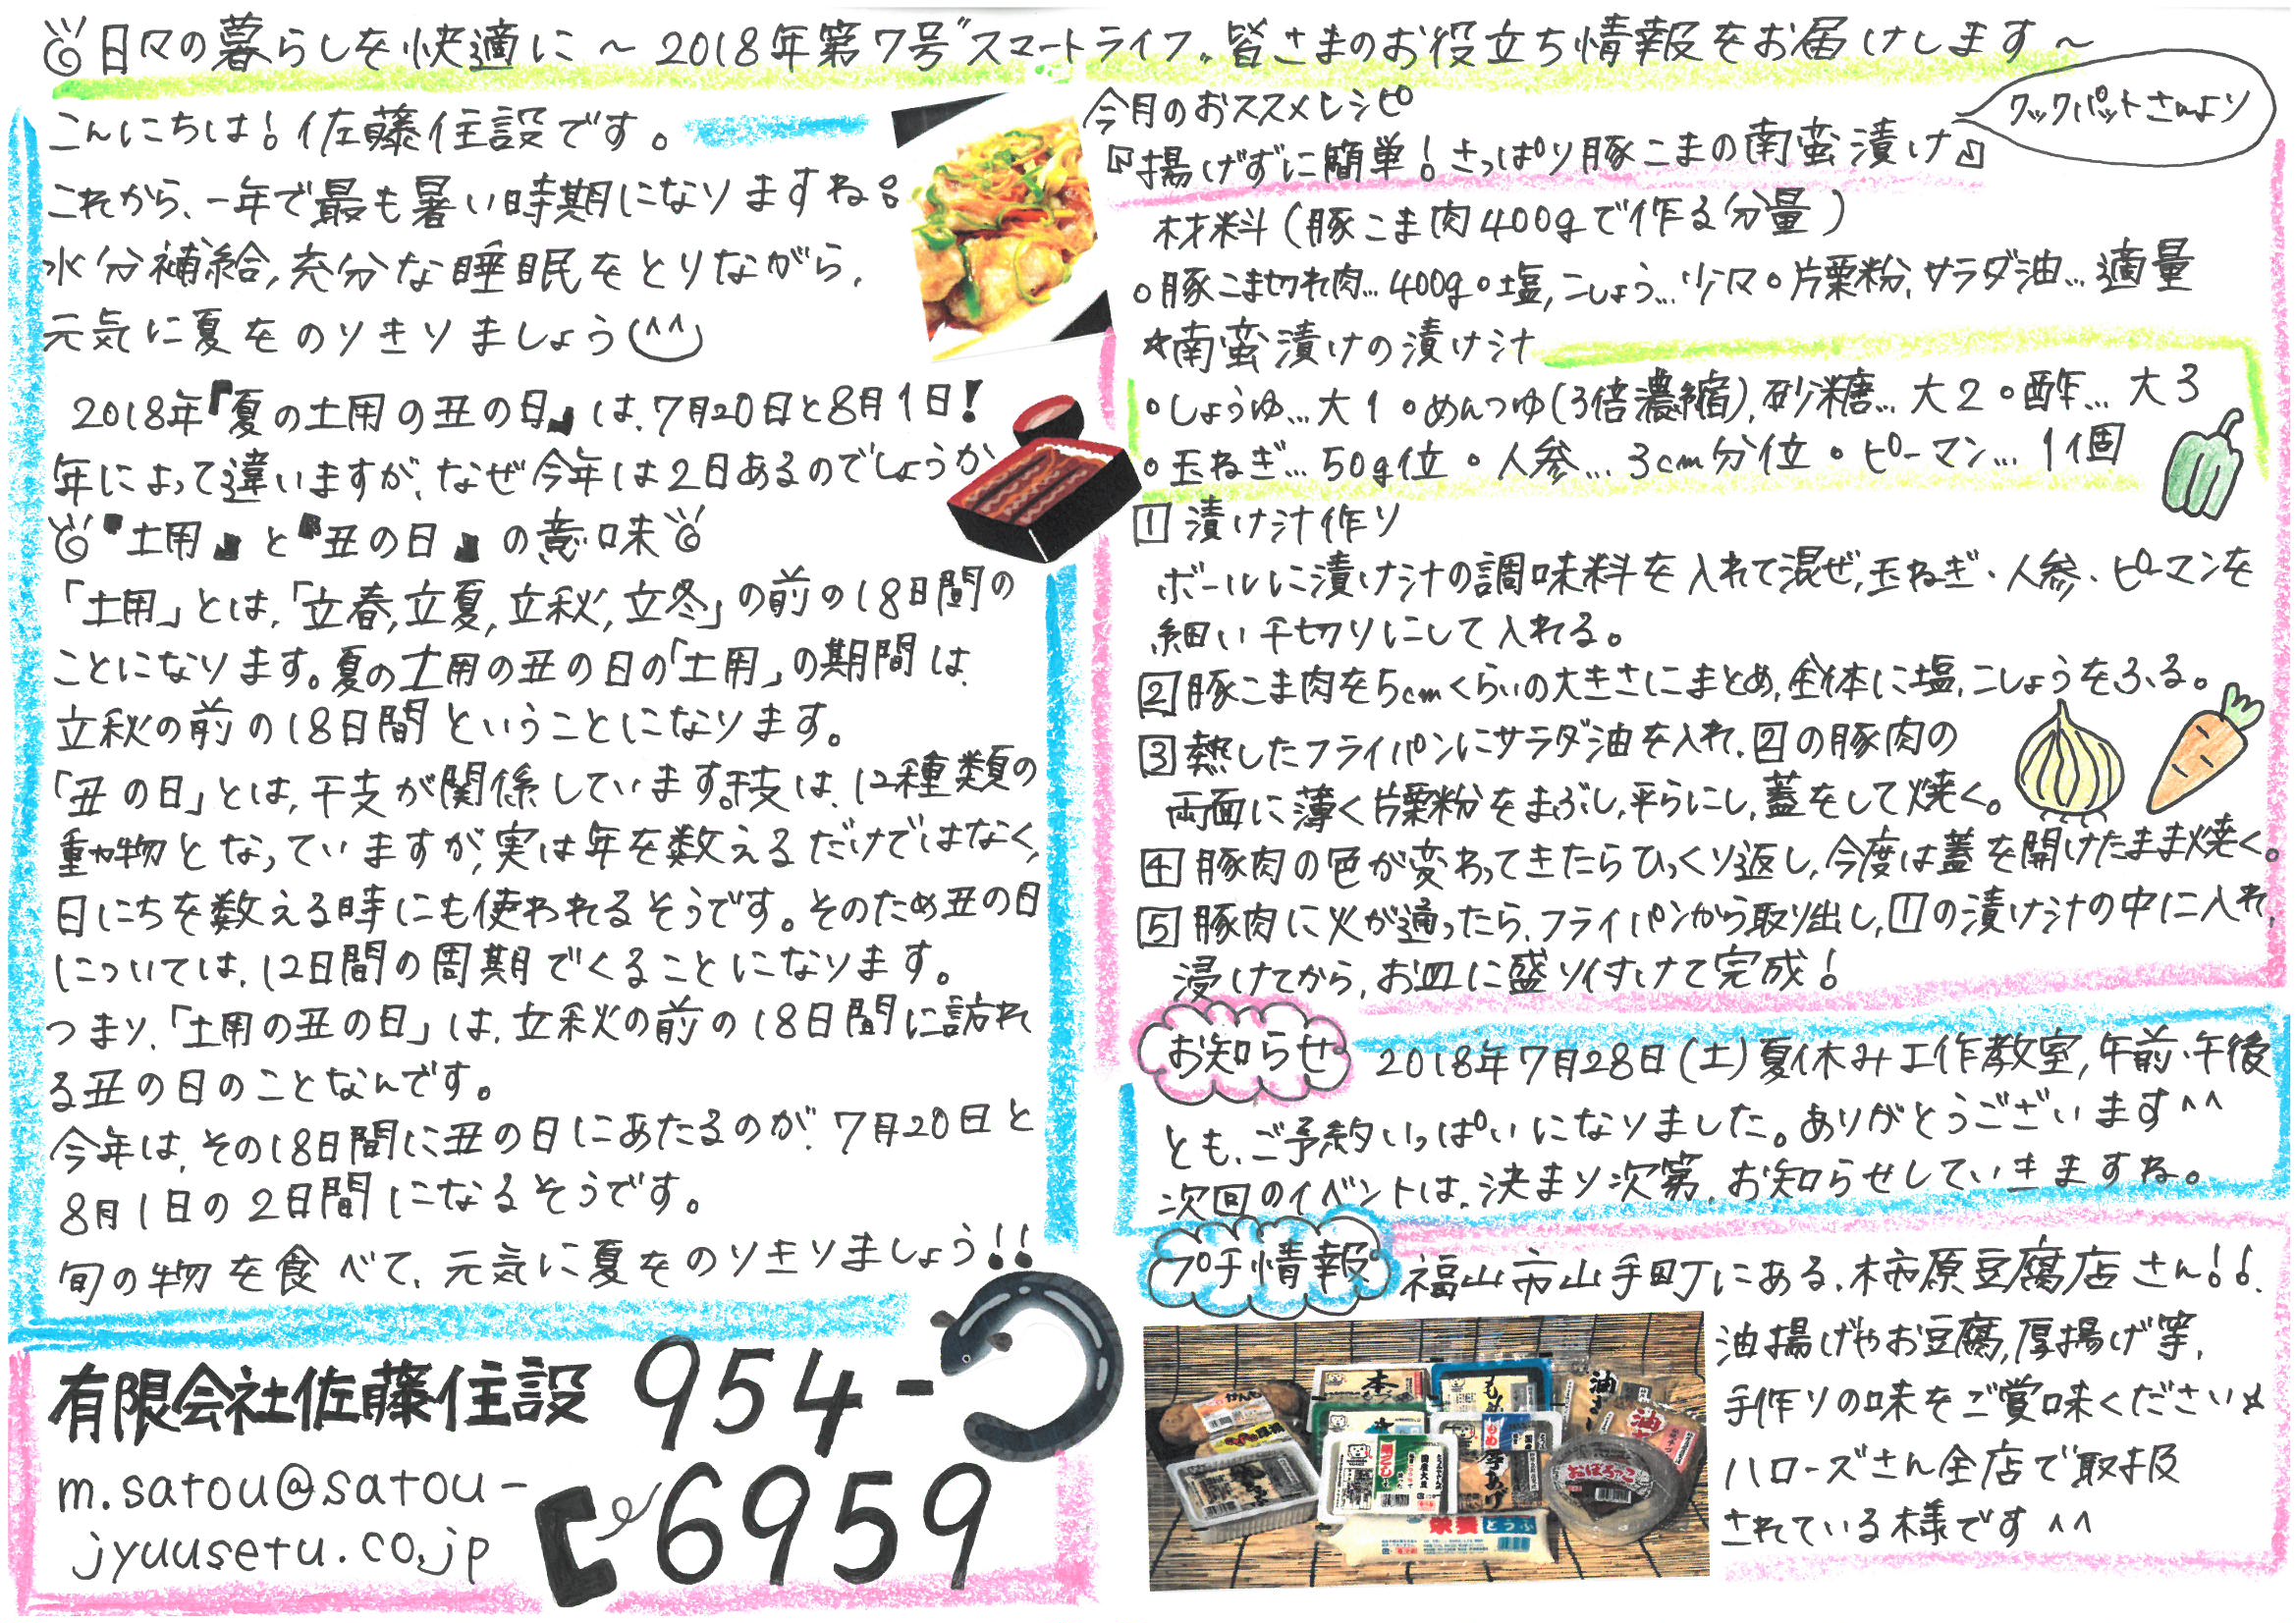 日々の暮らしを快適に～2018年第7号"スマートライフ"皆さまのお役立ち情報をお届けします～
こんにちは!佐藤住設です。
これから、一年で最も暑い時期になりますね。
水分補給,充分な睡眠をとりながら,
元気に夏をのりきりましょう(^^)
2018年『夏の土用の丑の日』は、7月20日と8月1日!
年によって違いますが、なぜ今年は2日あるのでしょうか
『土用』と『丑の日』の意味
「土用」とは,「立春,立夏,立秋,立冬」の前の18日間の
ことになります。夏の土用の丑の日の「土用」の期間は、
立秋の前の18日間ということになります。
「丑の日」とは,干支が関係しています。干支は、12種類の
動物となっていますが,実は年を数えるだけではなく,
日にちを数える時にも使われるそうです。そのため丑の日
については、12日間の周期でくることになります。
つまり、「土用の丑の日」は、立秋の前の18日間に訪れ
る丑の日のことなんです。
今年は、その18日間に丑の日にあたるのが、7月20日と
8月1日の2日間になるそうです。
旬の物を食べて、元気に夏をのりきりましょう!!
有限会社佐藤住設 954-
6959
m.satou@satou-
jyuusetu.co.jp
今月のおススメレシピ
クックパットさんより
『揚げずに簡単!さっぱり豚こまの南蛮漬け』
材料(豚こま肉400gで作る分量)
○豚こま切れ肉…400g○塩,こしょう…少々○片栗粉,サラダ油…適量
☆南蛮漬けの漬け汁
○しょうゆ…大1○めんつゆ(3倍濃縮),砂糖…大2○酢…大3
○玉ねぎ…50g位○人参…3cm分位○ピーマン…1個
1 漬け汁作り
ボールに漬け汁の調味料を入れて混ぜ,玉ねぎ・人参・ピーマンを
細い千切りにして入れる。
2 豚こま肉を5cmくらいの大きさにまとめ,全体に塩,こしょうをふる。
3 熱したフライパンにサラダ油を入れ、2の豚肉の
両面に薄く片栗粉をまぶし,平らにし,蓋をして焼く。
4 豚肉の色が変わってきたらひっくり返し,今度は蓋を開けたまま焼く。
5 豚肉に火が通ったら、フライパンから取り出し,1の漬け汁の中に入れ,
浸けてから,お皿に盛り付けて完成!
お知らせ 2018年7月28日(土)夏休み工作教室,午前・午後
とも、ご予約いっぱいになりました。ありがとうございます^^
次回のイベントは、決まり次第、お知らせしていきますね。
プチ情報 福山市山手町にある、柿原豆腐店さん!!
油揚げやお豆腐,厚揚げ等,
手作りの味をご賞味ください
ハローズさん全店で取扱
されている様です^^
おぼろっこ
厚あげ
栄養とうふ